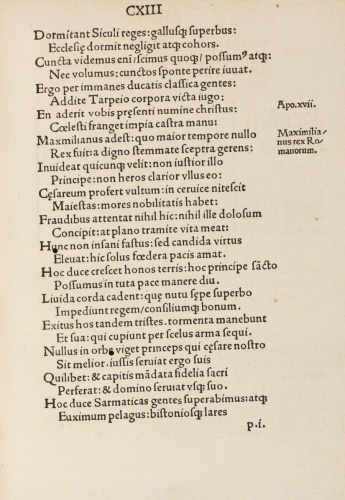 CXIII
Dormitant Siculi reges: gallusq̃ superbus:
Ecclesię dormit negligit atq̃ cohors.
Cuncta videmus eni/ scimus quoq̃/ possumꝰ atq̃:
Nec volumus: cunctos sponte perire iuuat.
Ergo per immanes ducatis classica gentes:
Addite Tarpeio corpora victa iugo:
En aderit vobis pręsenti numine christus: Apo.xvii.
Cœlesti franget impia castra manu:
Maximilianus adest: quo maior tempore nullo Maximilia/
Rex fuit: a digno stemmate sceptra gerens: nus rex Ro
Inuideat quicunq̃ velit: non iustior illo manorum.
Principe: non heros clarior vllus eo:
Cęsareum profert vultum: in ceruice nitescit
Maiestas: mores nobilitatis habet:
Fraudibus attentat nihil hic: nihil ille dolosum
Concipit: at plano tramite vita meat:
Hunc non insani fastus: sed candida virtus
Eleuat: hic solus fœdera pacis amat.
Hoc duce crescet honos terris: hoc principe sãcto
Possumus in tuta pace manere diu.
Liuida corda cadent: quę nutu sępe superbo
Impediunt regem/ consiliumq̃ bonum.
Exitus hos tandem tristes. tormenta manebunt
Et sua: qui cupiunt per scelus arma sequi.
Nullus in orbe viget princeps qui cęsare nostro
Sit melior. iussis seruiat ergo suis
Quilibet: & capitis mãdata fidelia sacri
Perferat: & domino seruiat vsq̃ suo.
Hoc duce Sarmaticas gentes superabimus: atq̃
Euximum pelagus: bistoniosq̃ lares
p.i.